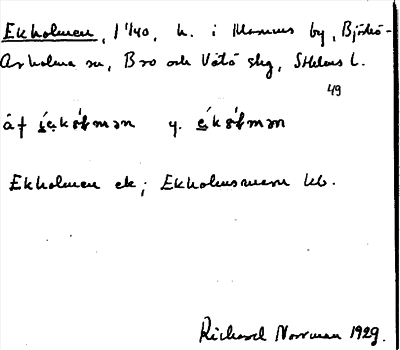 Ekholmen, 1 1/40, h. i Marums by, Björkö-
Arholma sn, Bro och Vätö skg, Sthlms l.
49
åf
y.
Ekholmen ek; Ekholmsmarn kb.
Richard Norrman 1929.